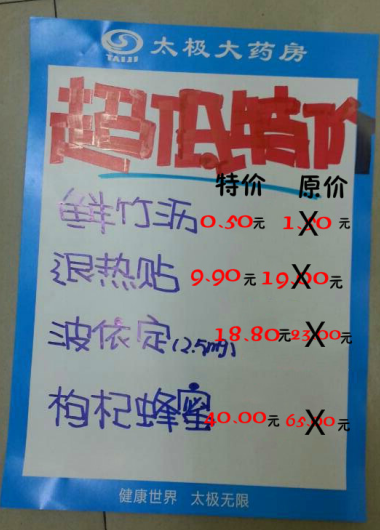 TAIJI 太极大药房
超低特价
特价 原价
鲜竹沥 0.50元 元
退热贴 9.90元 19.00元
波依定(2.5mg) 18.80元 23.00元
枸杞蜂蜜 40.00元 65.00元
健康世界 太极无限